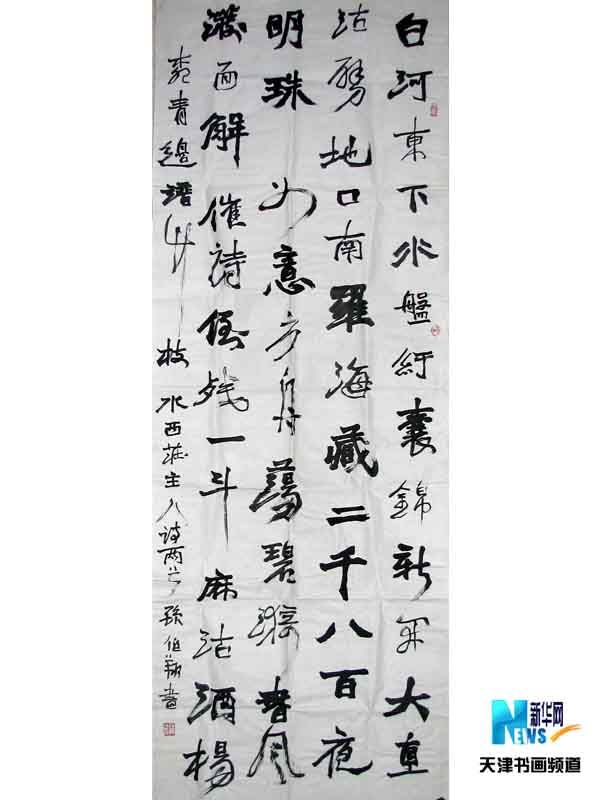 白河東下水盤紆囊錦新開大直
沽劈地口南羅海藏二千八百夜
明珠 如意方舟蕩碧漪春風
潑面解催詩殘一斗麻沽酒楊
柳青邊譜竹枝 水西莊主人詩兩首 孫伯翔書
新华网
NEWS
天津书画频道